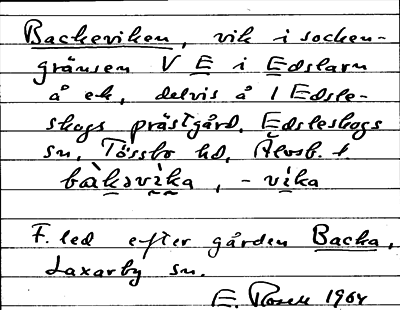 Backeviken, vik i socken-
gränsen V E i Edslarn
å ek, delvis å 1 Edsle-
skogs prästgård, Edsleskogs
sn, Tössbo hd, Älvsb. l.
bàkəvìka, - vika
F. led efter gården Backa,
Laxarby sn.
E. Rosell 1964